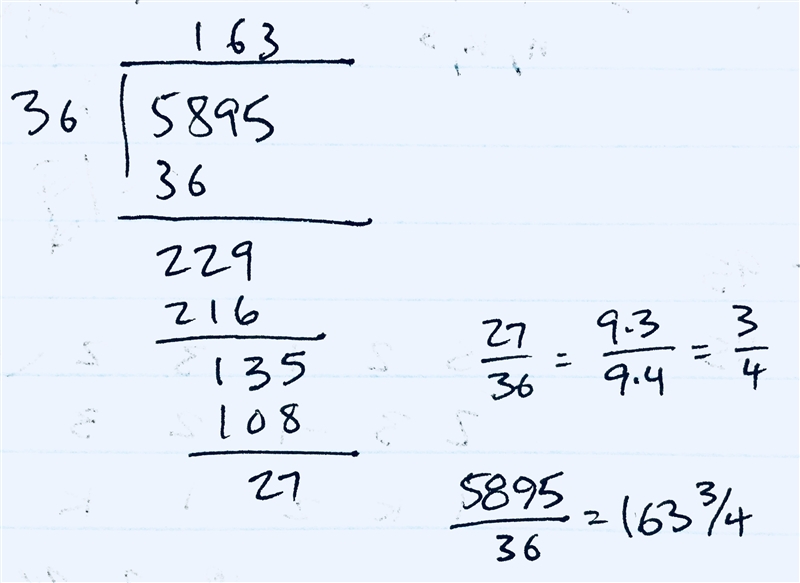 163
36 5895
36
229
216
135
108
27
27/36 = 9·3/9·4 = 3/4
5895/36 = 163 3/4